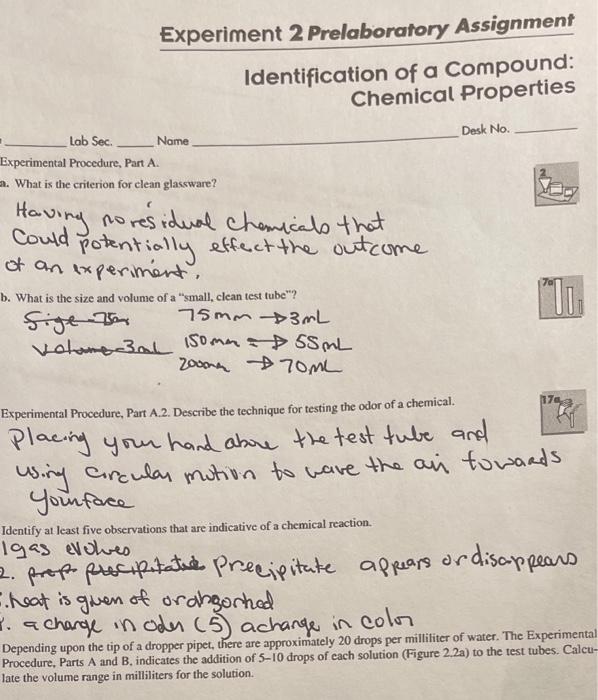 Experiment 2 Prelaboratory Assignment
Identification of a Compound:
Chemical Properties
Lab Sec. Name Desk No.
Experimental Procedure, Part A.
a. What is the criterion for clean glassware?
2
Having no residual chemicals that
Could potentially effect the outcome
of an experiment.
b. What is the size and volume of a "small, clean test tube"?
7a
Size 75mm 75mm → 3mL
volume 3mL 150mm → 55mL
200mm → 70mL
Experimental Procedure, Part A.2. Describe the technique for testing the odor of a chemical.
17a
Placing your hand above the test tube and
using circular motion to wave the air towards
your face
Identify at least five observations that are indicative of a chemical reaction.
1 gas evolves
2. Precipitate appears or disappears
. heat is given of or absorbed
. a change in oder (5) a change in color
Depending upon the tip of a dropper pipet, there are approximately 20 drops per milliliter of water. The Experimental
Procedure, Parts A and B, indicates the addition of 5–10 drops of each solution (Figure 2.2a) to the test tubes. Calcu-
late the volume range in milliliters for the solution.